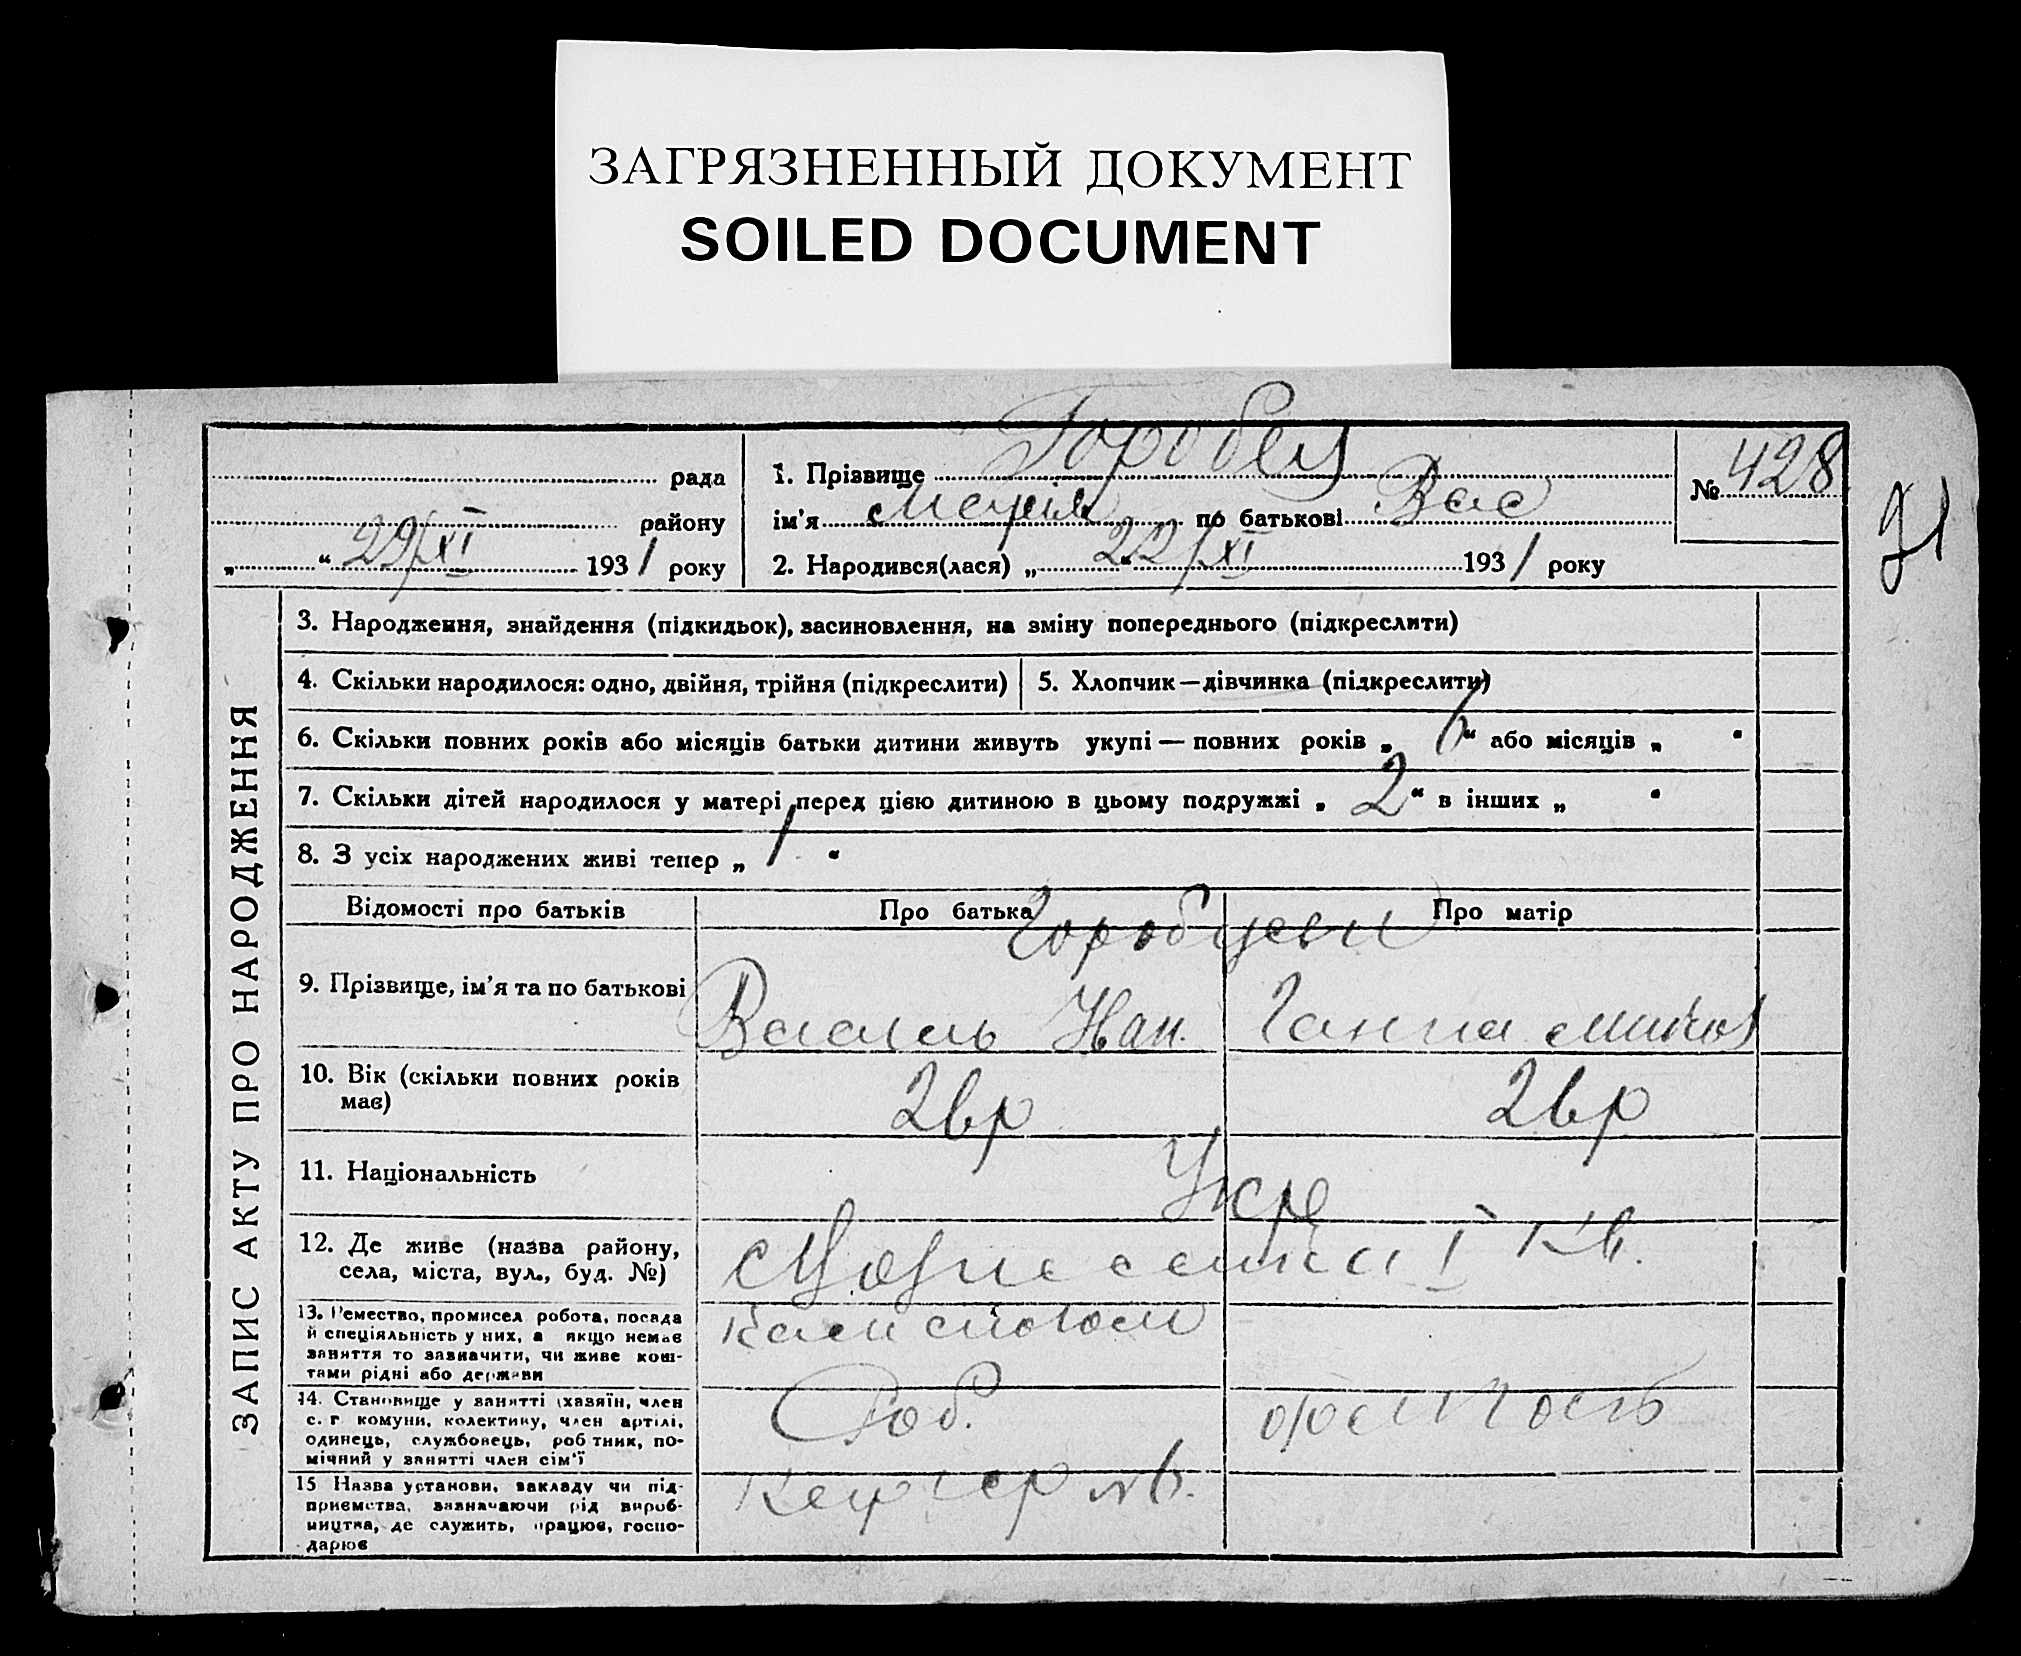 ЗАГРЯЗНЕННЫЙ ДОКУМЕНТ
SOILED DOCUMENT
рада
району
„ “ 29/XI 1931 року
1. Прізвище Горобец
ім'я Марія по батькові Вас
2. Народився(лася) „ 22/XI “ 1931 року
№ 428
71
ЗАПИС АКТУ ПРО НАРОДЖЕННЯ
3. Народження, знайдення (підкидьок), засиновлення, на зміну попереднього (підкреслити)
4. Скільки народилося: одно, двійня, трійня (підкреслити)
5. Хлопчик—дівчинка (підкреслити)
6. Скільки повних років або місяців батьки дитини живуть укупі — повних років „ 6 “ або місяців „ “
7. Скільки дітей народилося у матері перед цією дитиною в цьому подружжі „ 2 “ в інших „ “
8. З усіх народжених живі тепер „ 1 “
Відомості про батьків
Про батька
Про матір
Горобцеви
9. Прізвище, ім'я та по батькові
Василь Ив��н.
Ганна
10. Вік (скільки повних років має)
26р
26р
11. Національність
Укр
12. Де живе (назва району, села, міста, вул., буд. №)
I
13. Ремество, промисел робота, посада
й спеціяльність у них, а якщо немає
заняття то зазначити, чи живе кош-
тами рідні або держави
14. Становище у занятті (хазяїн, член
с. г комуни, колективу, член артілі,
одинець, службовець, робітник, по-
мічний у занятті член сім'ї
Роб.
15 Назва установи, закладу чи під-
приємства, зазначаючи рід вироб-
ництва, де служить, працює, госпо-
дарює